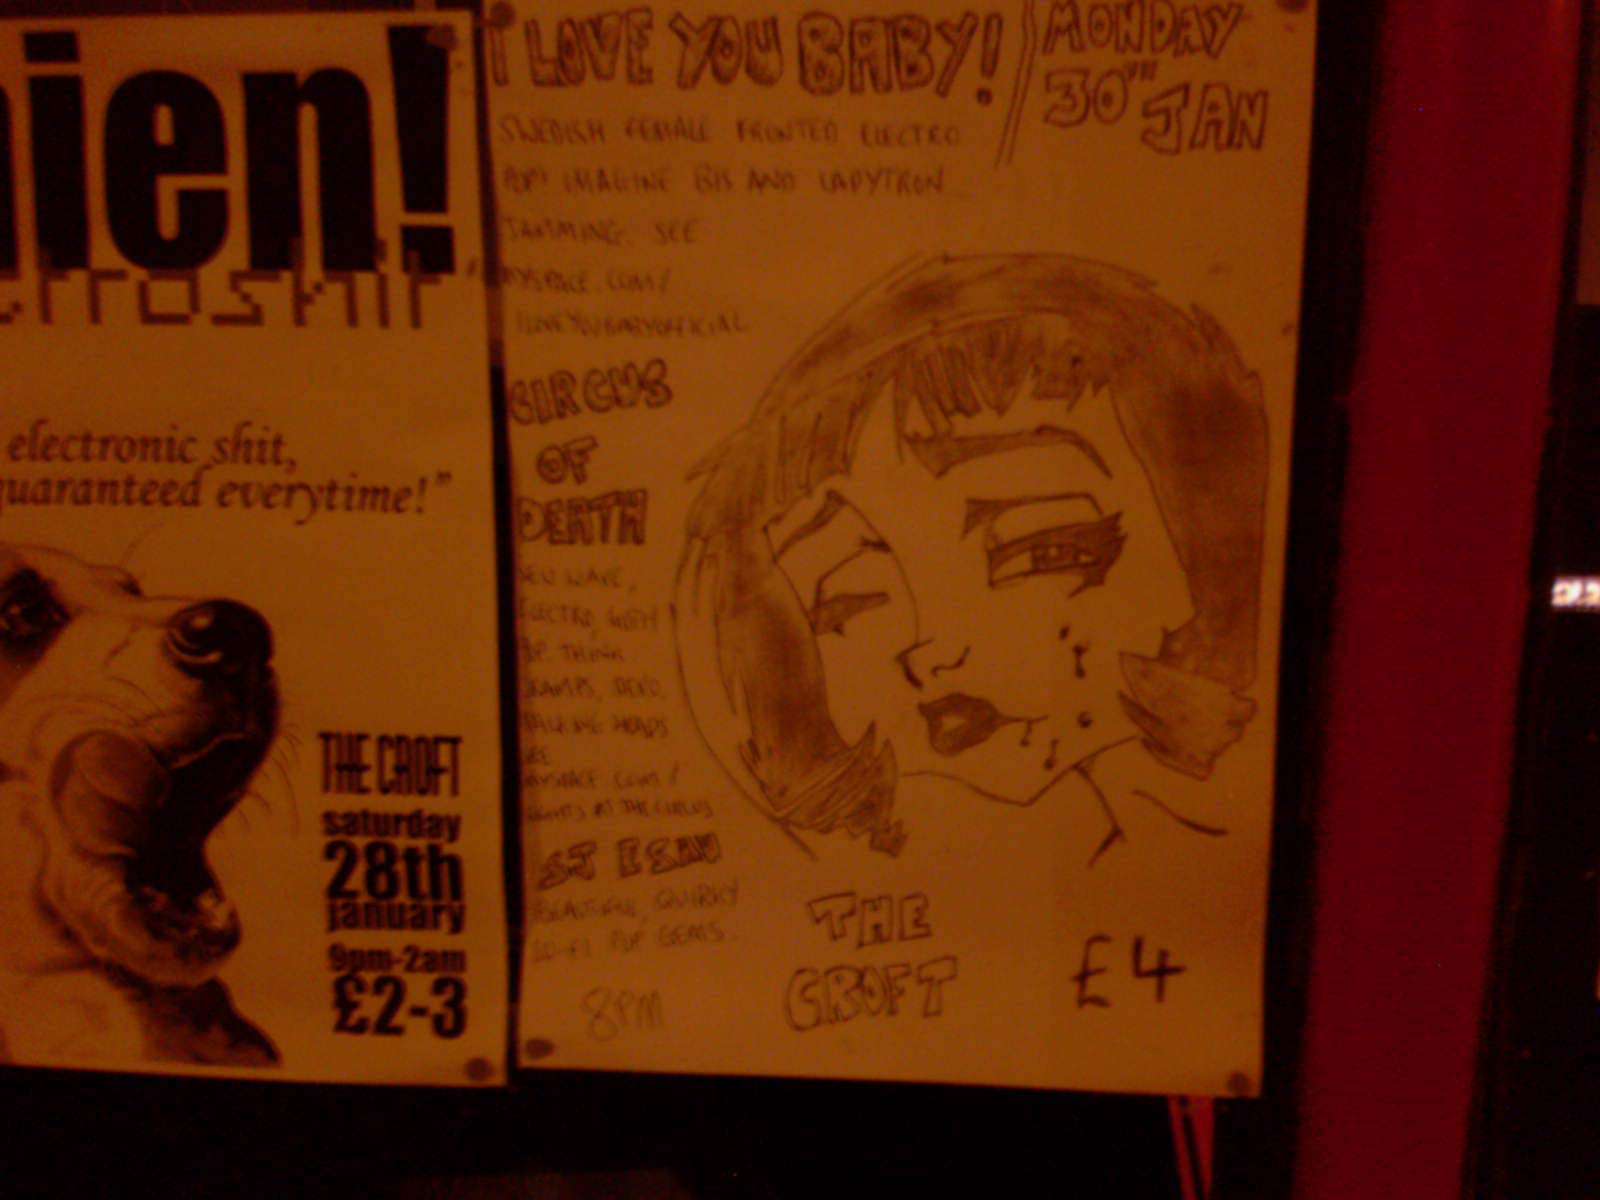 ien!
electronic shit,
guaranteed everytime!"
THE CROFT
saturday
28th
january
9pm-2am
£2-3
I LOVE YOU BABY!
MONDAY
30TH
JAN
SWEDISH FEMALE FRONTED ELECTRO
POP! IMAGINE BIS AND LADYTRON
JAMMING. SEE
MYSPACE.COM/
ILOVEYOUBABYOFFICIAL
CIRCUS
OF
DEATH
NEU WAVE,
ELECTRO, GOTH
POP. THINK
CRAMPS, DEVO,
TALKING HEADS
SEE
MYSPACE.COM/
NIGHTS AT THE CIRCUS
SJ ESAU
BEAUTIFUL, QUIRKY
LO-FI POP GEMS.
8PM
THE
CROFT
£4